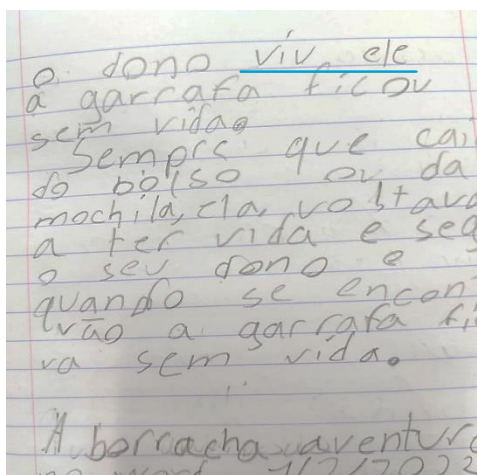 o dono viv ele
a garrafa ficou
sem vida.
Sempre que cai
do bolso ou da
mochila, ela, vostava
a ter vida e seg
o seu dono e
quando se encon
trão a garrafa fi
va sem vida.
A borracha aventur